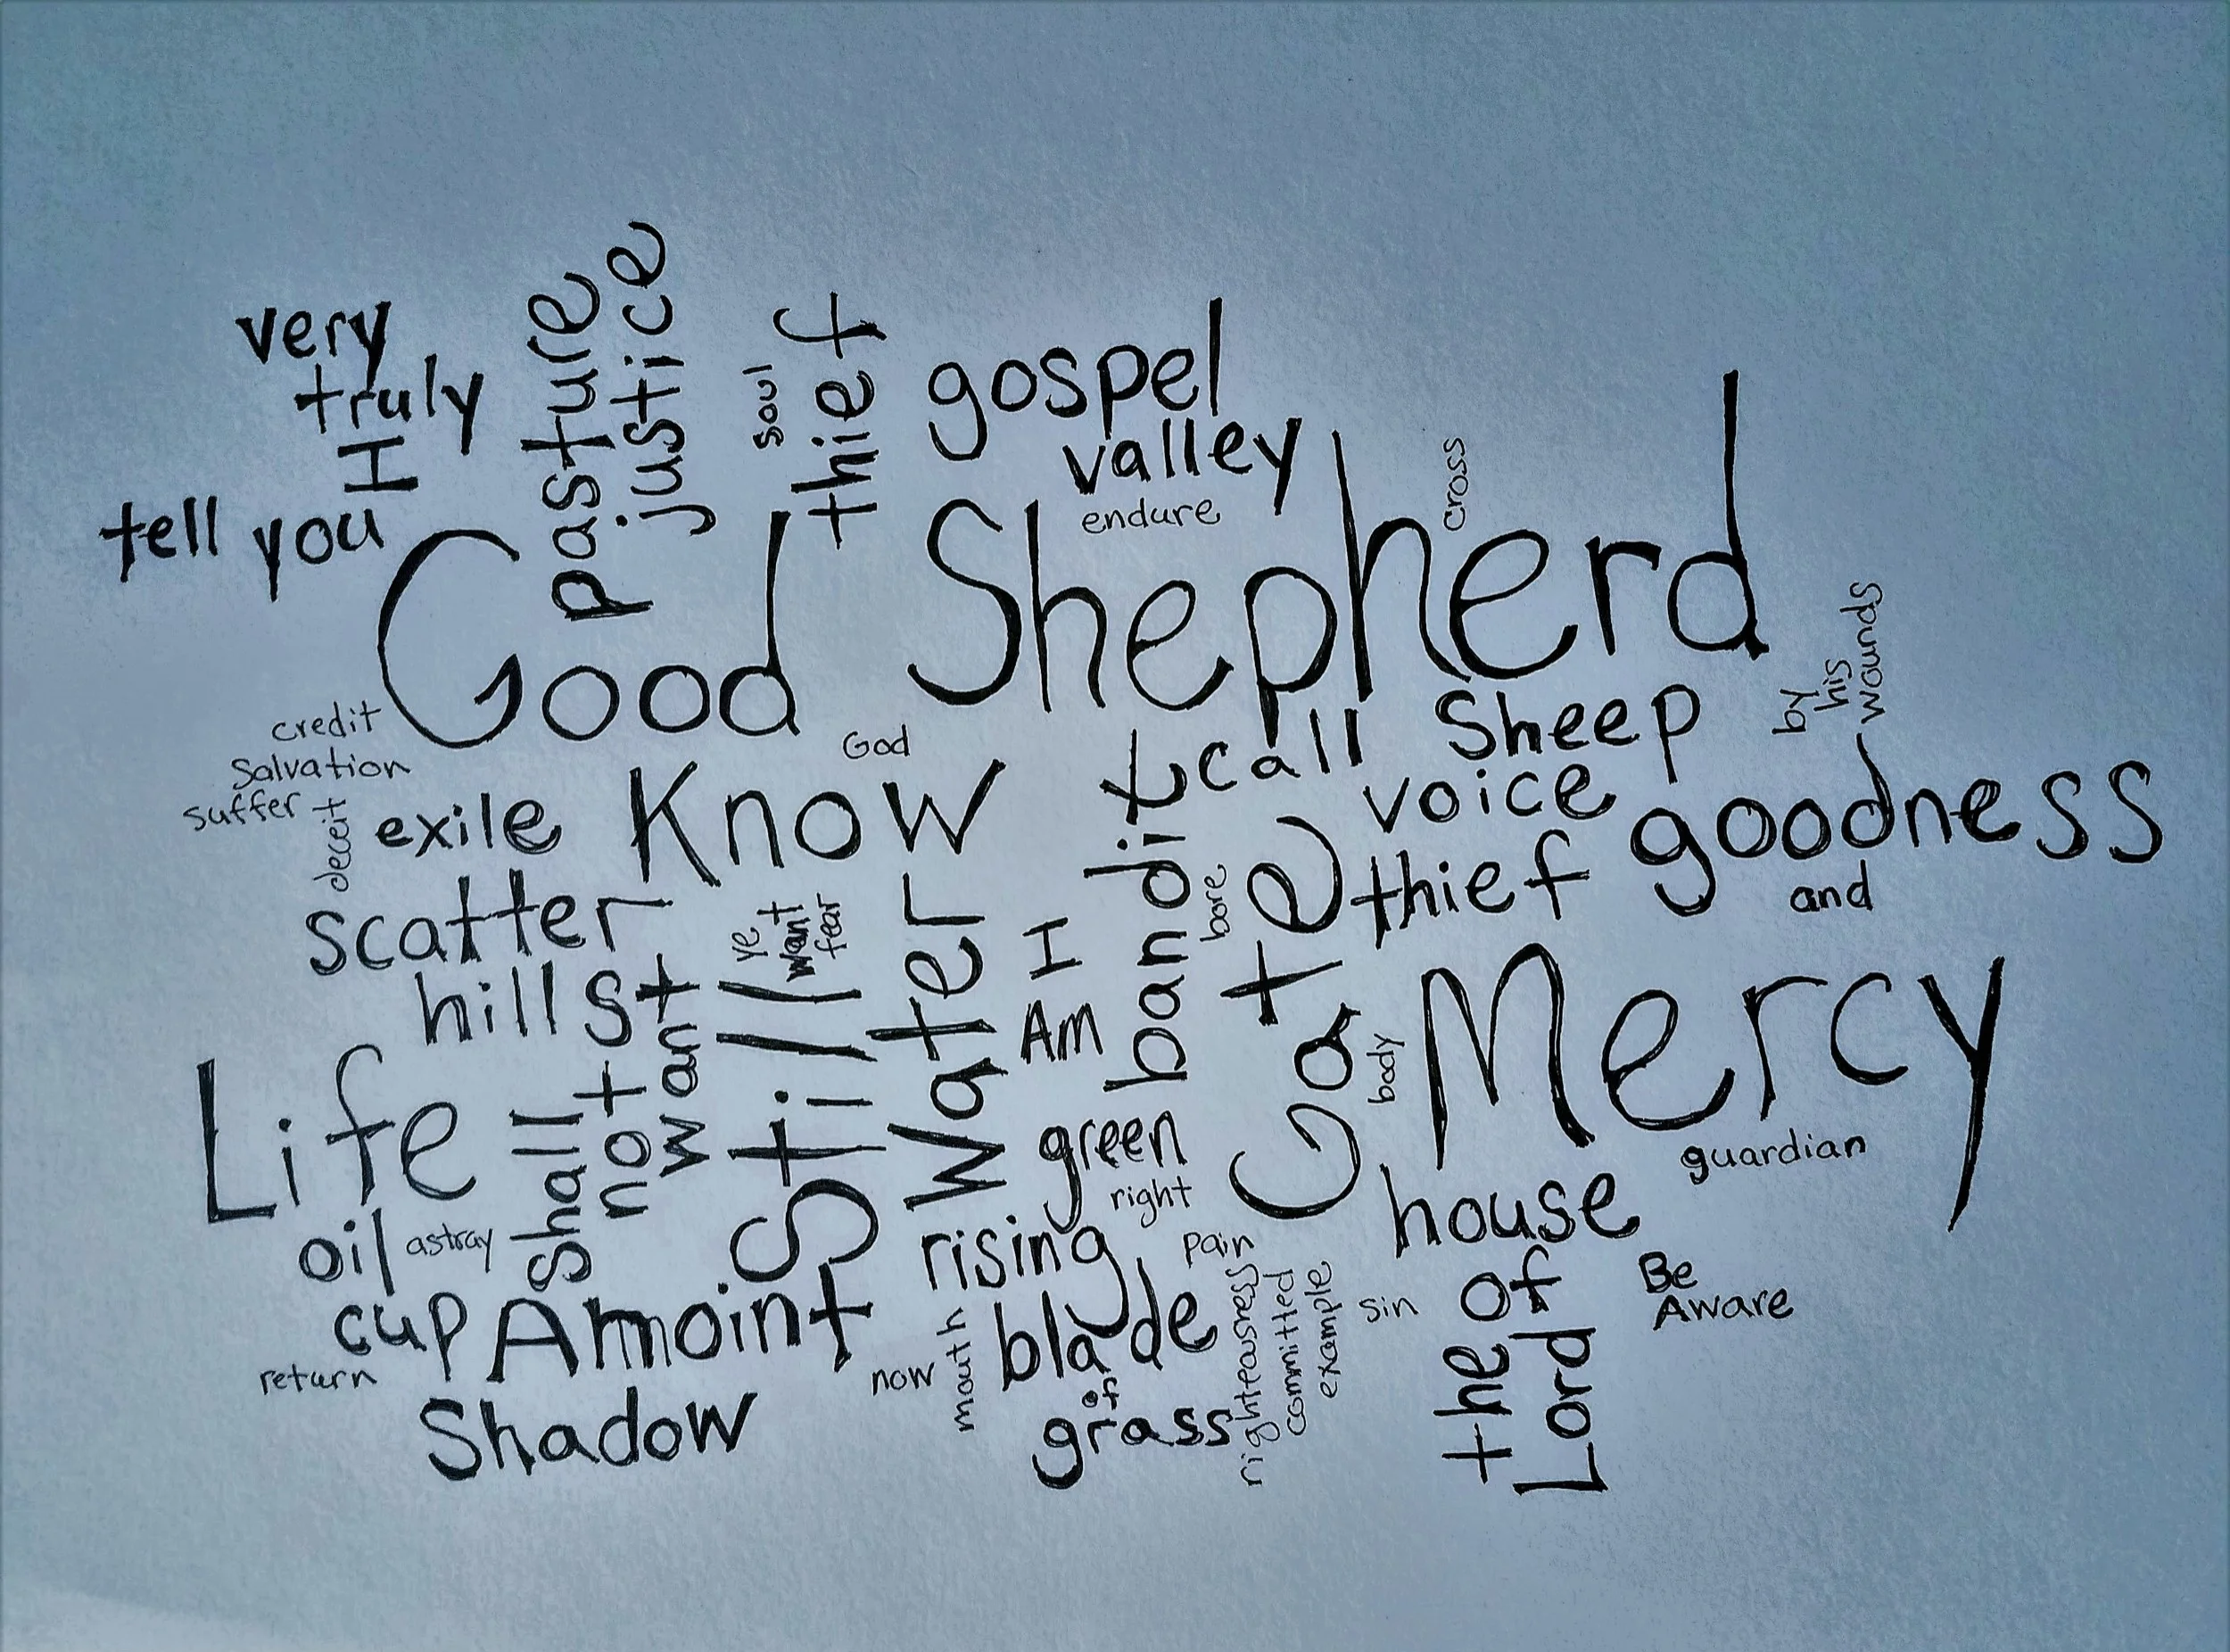 very
truly
I
tell you
pasture
justice
soul
thief
gospel
valley
endure
cross
Good Shepherd
by
his
wounds
credit
salvation
suffer
deceit
God
exile
Know
bandit
call
Sheep
voice
thief
goodness
and
scatter
hills
ye
want
fear
Still
Water
I
Am
bore
Gate
body
Mercy
guardian
Life
shall
not
want
green
right
house
of
the
Lord
Be
Aware
oil
astray
cup
Amoint
return
Shadow
rising
pain
now
mouth
blade
of
grass
righteousness
committed
example
sin